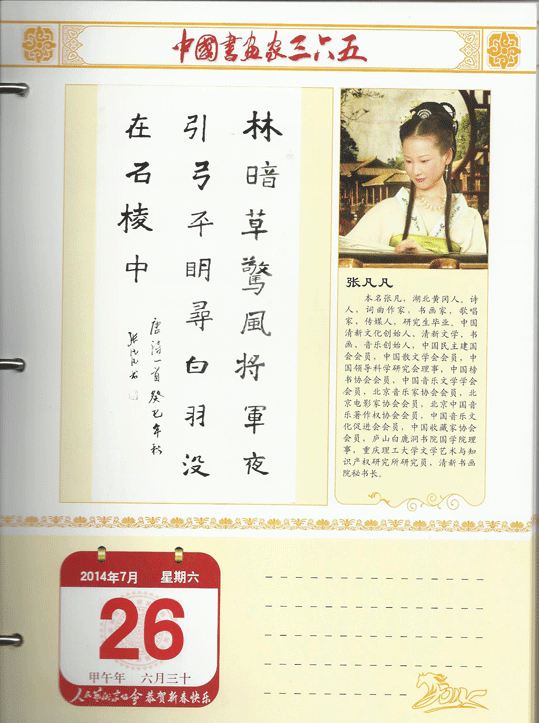 中國書畫家三六五
林暗草驚風將軍夜
引弓平眀尋白羽没
在石棱中
唐诗一首癸巳年秋
张凡凡
本名张凡，湖北黄冈人。诗
人，词曲作家，书画家，歌唱
家，传媒人，研究生毕业。中国
清新文化创始人、清新文学、书
画、音乐创始人，中国民主建国
会会员，中国散文学会会员，中
国领导科学研究会理事，中国榜
书协会会员，中国音乐文学学会
会员，北京音乐家协会会员，北
京电影家协会会员，北京中国音
乐著作权协会会员，中国音乐文
化促进会会员，中国收藏家协会
会员，庐山白鹿洞书院国学院理
事，重庆理工大学文学艺术与知
识产权研究所研究员，清新书画
院秘书长。
2014年7月 星期六
26
甲午年 六月三十
恭贺新春快乐